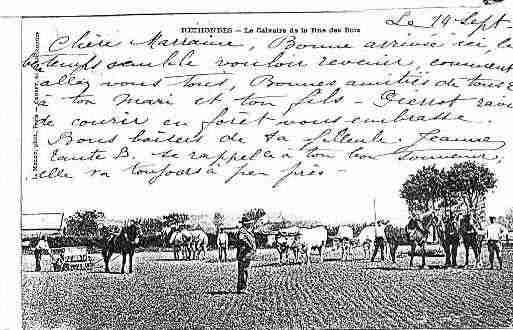 RETHONDES – Le Calvaire de la Rue des Bois
Le 19 Sept.
Chère Marraine, Bonne arrivée ici, le
temps semble vouloir revenir, comment
allez vous tous, Bonnes amitiés de tous
à ton Mari et ton fils – Pierrot ravi
de courir en forêt vous embrasse.
Bons baisers de ta filleule Jeanne
Tante B. se rappelle à ton bon souvenir,
elle va toujours à peu près –